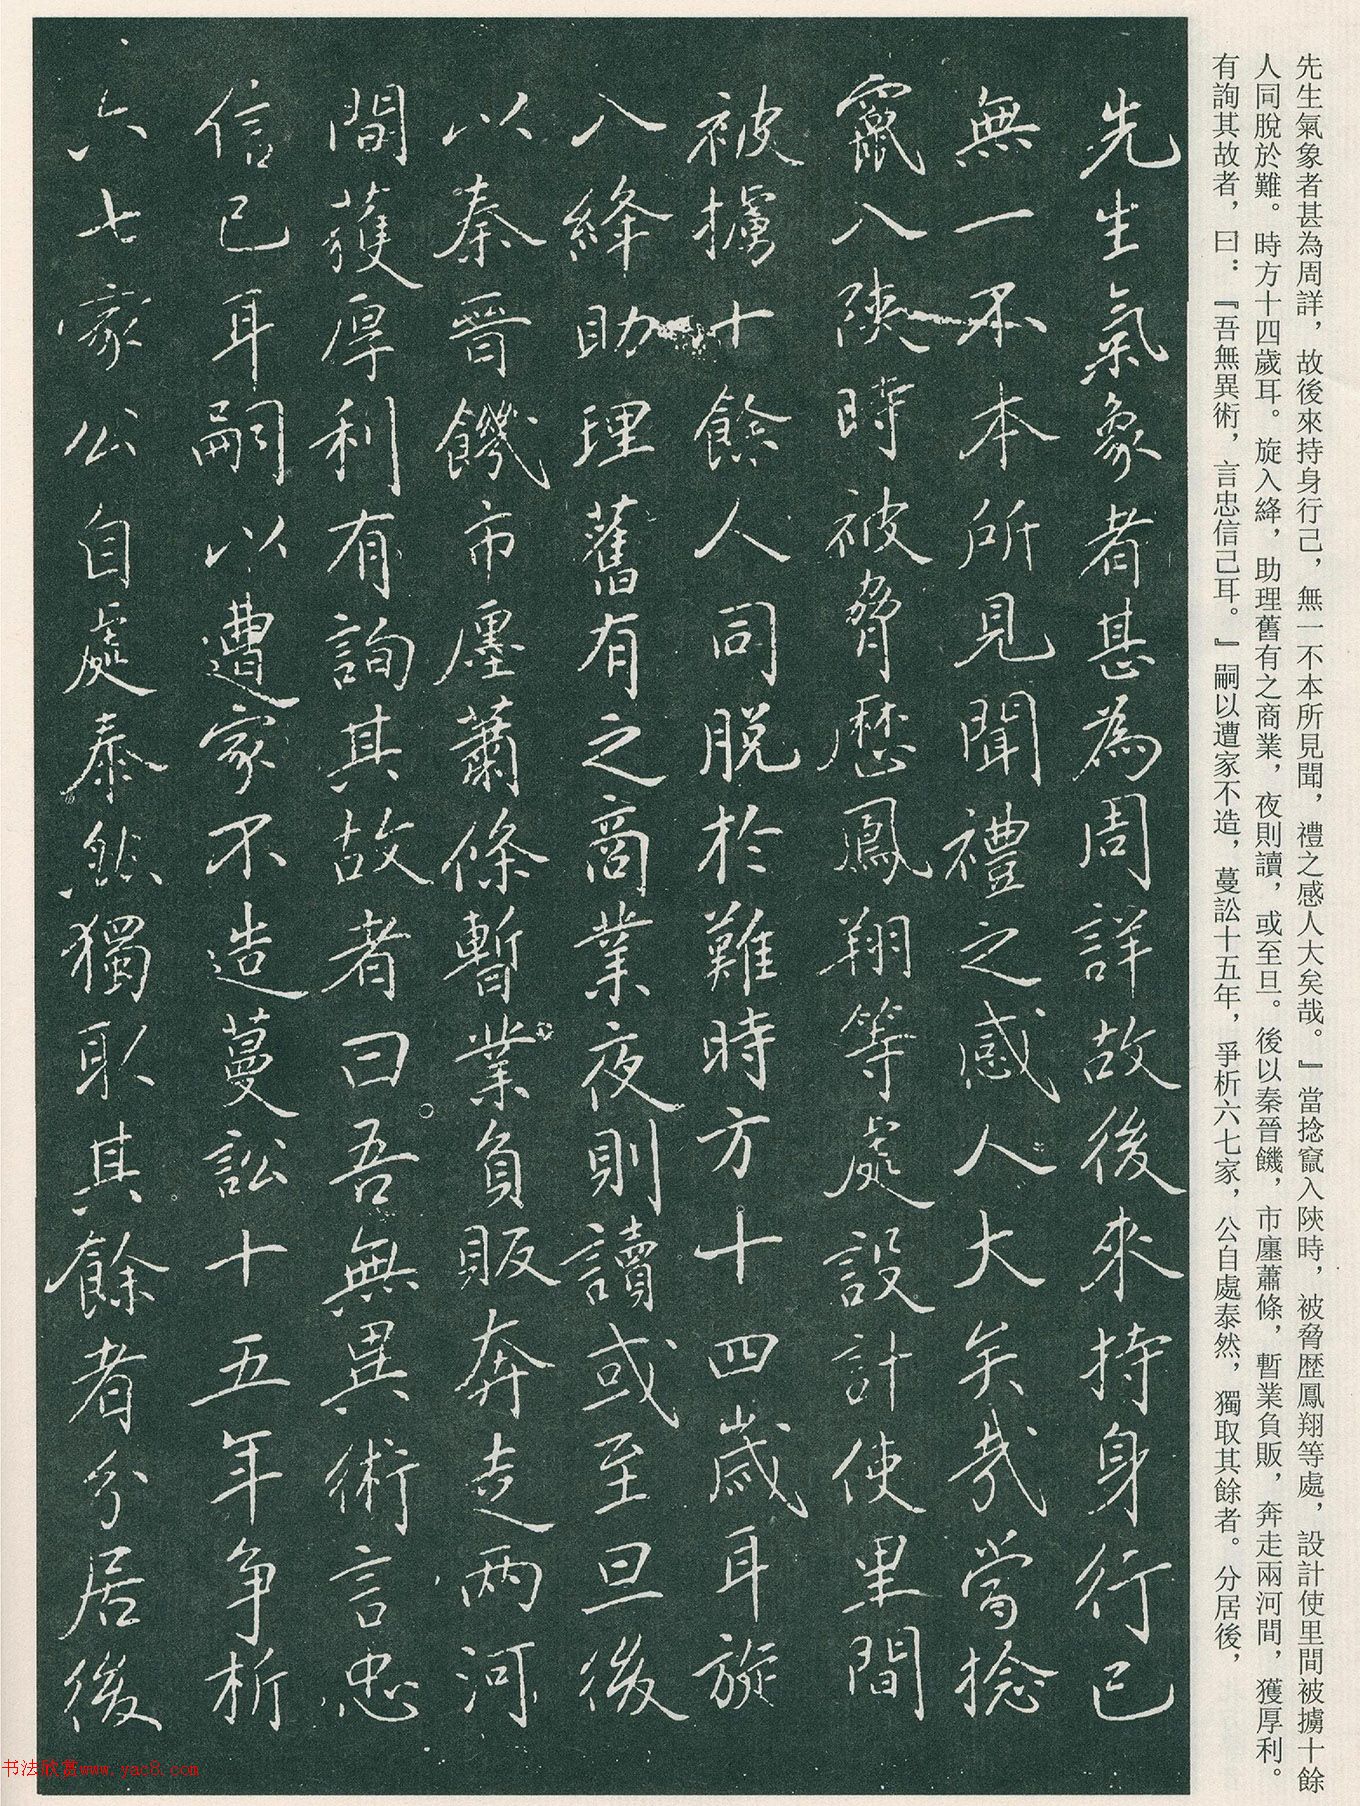 先生氣象者甚為周詳，故後來持身行己，無一不本所見聞，禮之感人大矣哉。』當捻竄入陝時，被脅歷鳳翔等處，設計使里間被擄十餘
人同脫於難。時方十四歲耳。旋入絳，助理舊有之商業，夜則讀，或至旦。後以秦晉饑，市廛蕭條，暫業負販，奔走兩河間，獲厚利。
有詢其故者，曰：『吾無異術，言忠信己耳。』嗣以遭家不造，蔓訟十五年，爭析六七家，公自處泰然，獨取其餘者。分居後，
先生氣象者甚為周詳故後來持身行己
無一不本所見聞禮之感人大矣哉當捻
竄入陝時被脅歷鳳翔等處設計使里間
被擄十餘人同脫於難時方十四歲耳旋
入絳助理舊有之商業夜則讀或至旦後
以秦晉饑市廛蕭條暫業負販奔走两河
間獲厚利有詢其故者曰吾無異術言忠
信已耳嗣以遭家不造蔓訟十五年争析
六七家公自處泰然獨取其餘者分居後
书法欣赏www.yac8.com